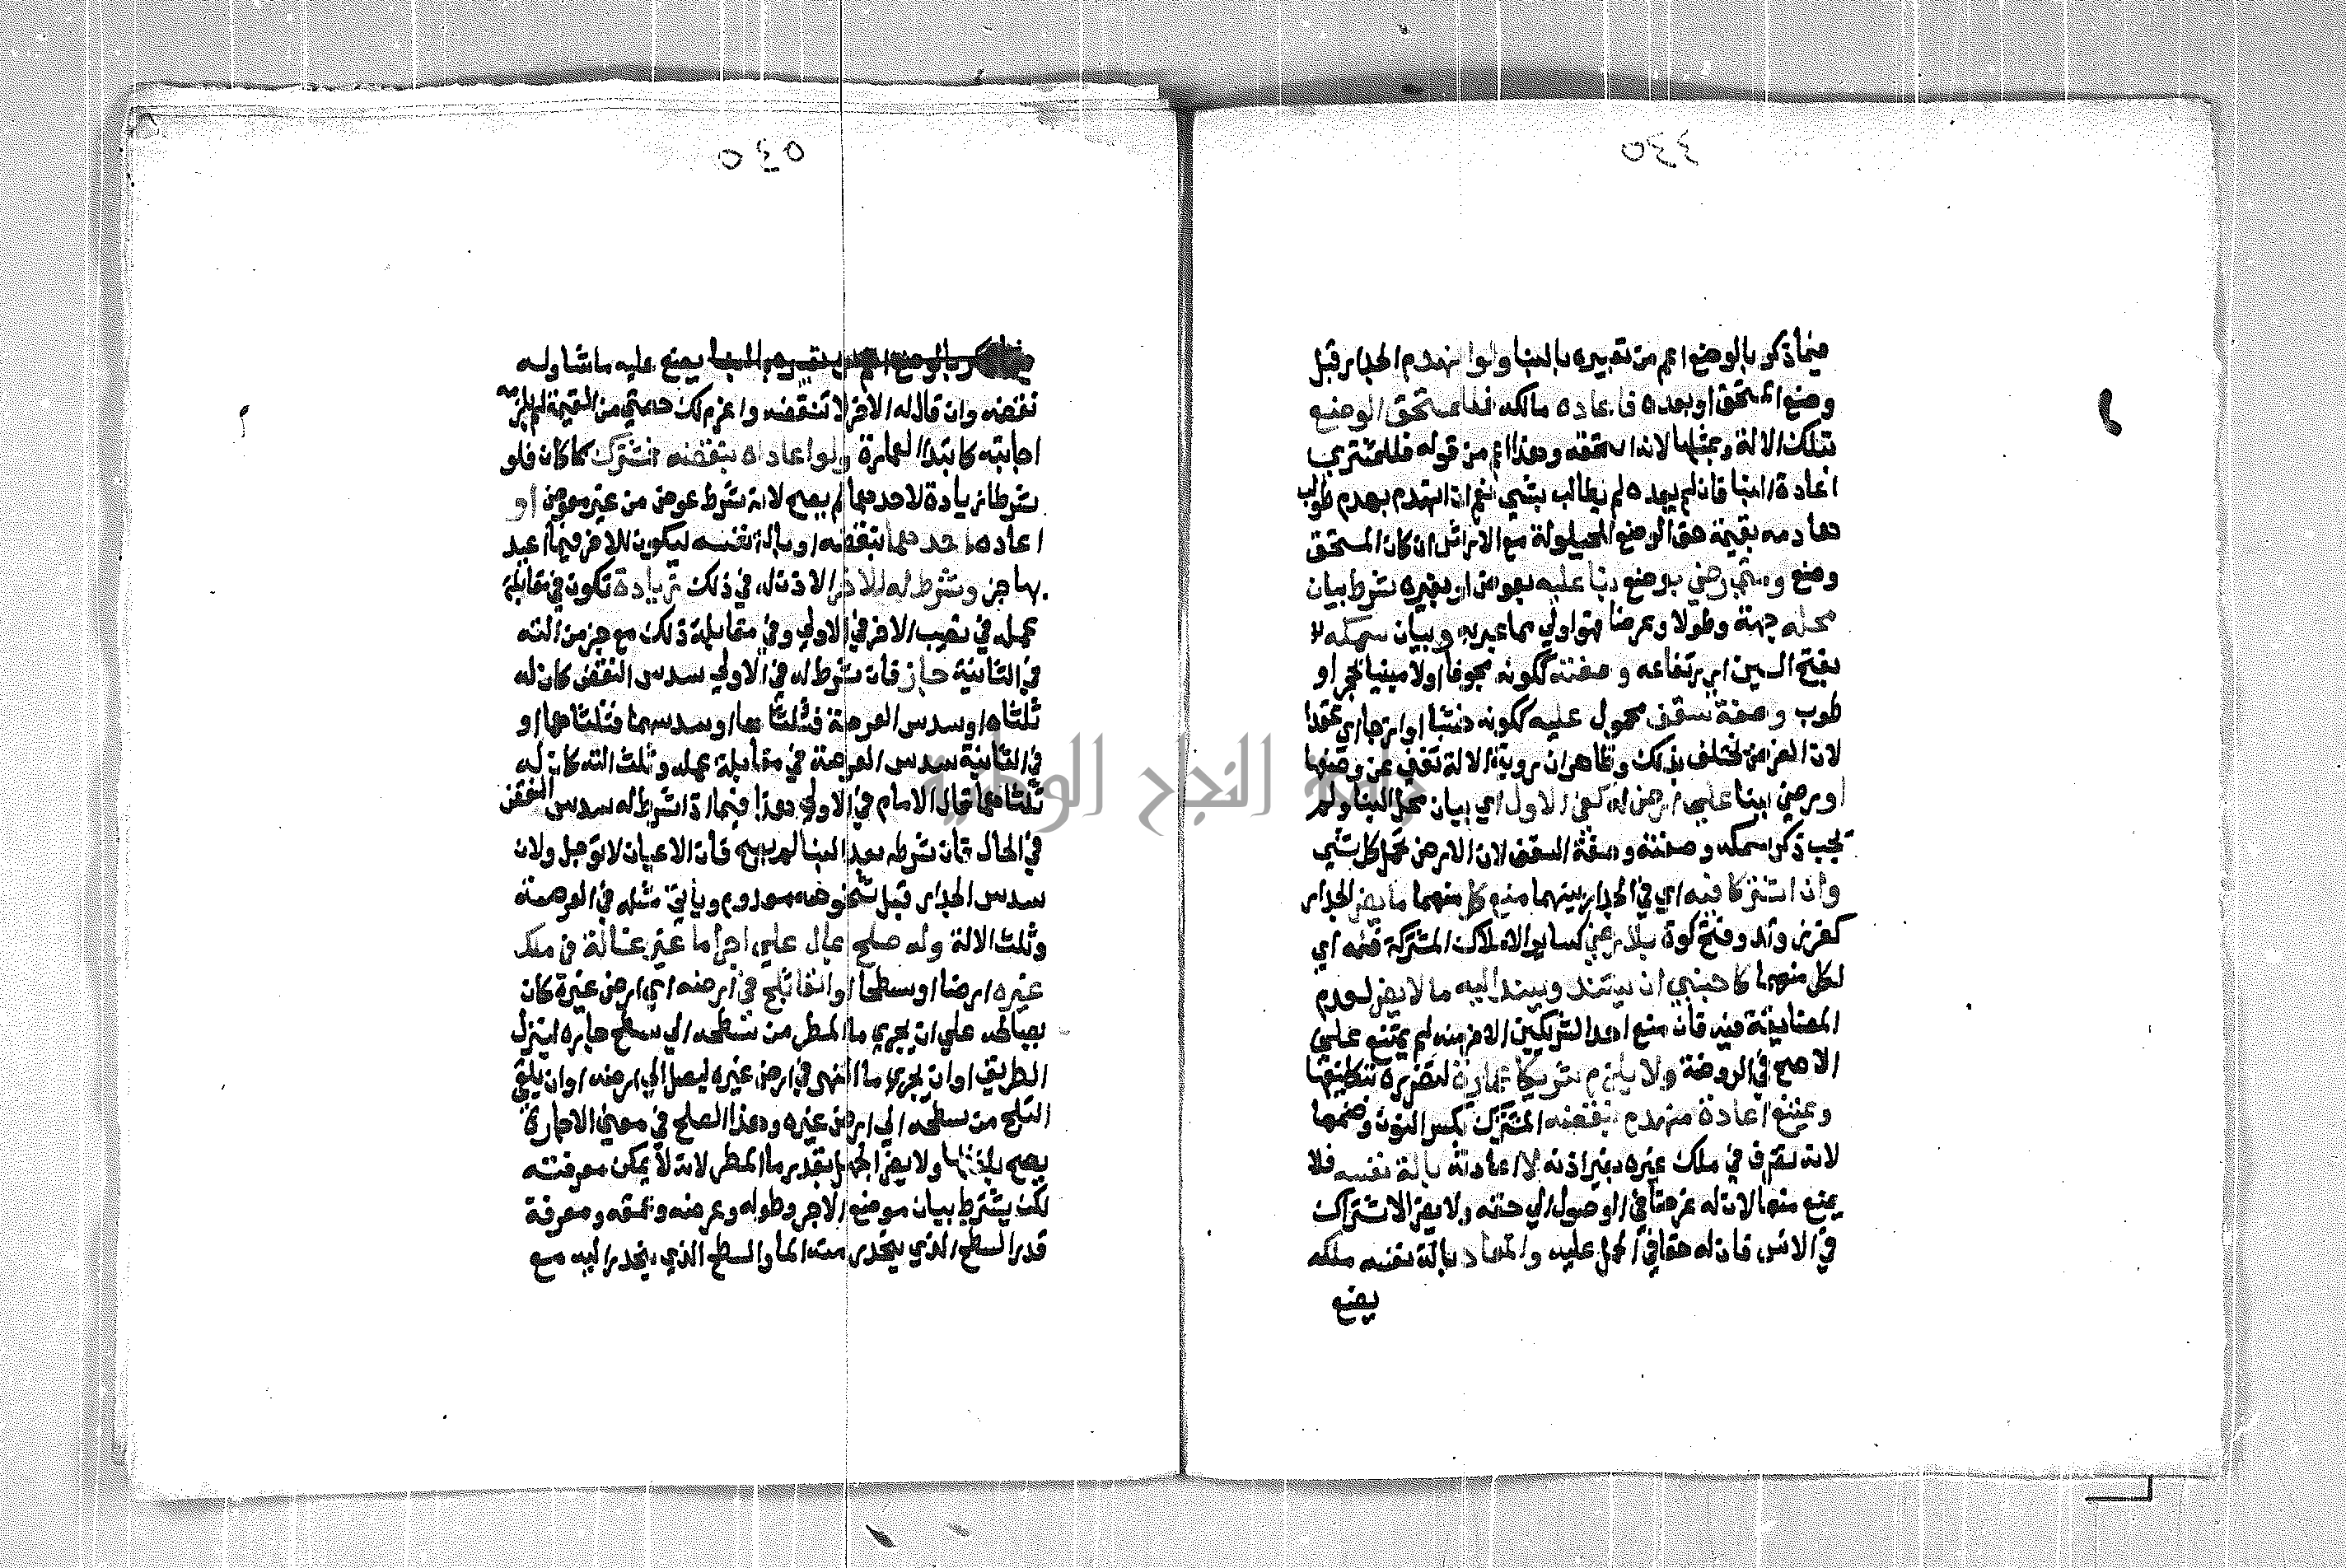 ٥٤٤
فيما ذكر بالوضع اعم من تعبيره بالبنا ولو انهدم الجدار قبل
وضع المستحق او بعده فاعاده مالكه فلمستحق الوضع
بتلك الالة وبمثلها لانه استحقه وهذا اعم من قوله فللمشتري
اعادة البنا فان لم يعده لم يطالب بشي نعم ان انهدم بهدم طولب
هادمه بقيمة حق الوضع للحيلولة مع الارش ان كان المستحق
وضع ومتي رضي بوضع بنا عليه بعوض او بغيره شرط بيان
محله جهة وطولا وعرضا هو اولي مما عبر به وبيان سمكه
بفتح السين اي ارتفاعه وصفته ككونه مجوفا او لا مبنيا بحجر او
طوب وصفة سقف محمول عليه ككونه خشبا او ازجا اي عقدا
لان الغرض يختلف بذلك وظاهر ان روية الالة تغني عن وصفها
او رضي ببنا علي ارض له كفي الاول اي بيان محل البنا ولم
يجب ذكر سمكه وصفته وصفة السقف لان الارض تحمل كل شي
وان اشتركا فيه اي في الجدار بينهما منع كل منهما ما يضر الجدار
كغرز وتد وفتح كوة بلا رضي كساير الاملاك المشتركة فله اي
لكل منهما كاجنبي ان يستند ويسند اليه ما لا يضر لعدم
المضايقة فيه فان منع احد الشريكين الاخر منه لم يمتنع علي
الاصح في الروضة ولا يلزم شريكا عمارة لتضرره بتكليفها
ويمنع اعادة منهدم بنقضه المشترك بكسر النون وضمها
لانه تصرف في ملك غيره بغير اذنه لا اعادته بالة نفسه فلا
يمنع منها لان له غرضا في الوصول الي حقه ولا يضر الاشتراك
في الاس فان له حقا في الحمل عليه والمعاد بالة نفسه ملكه
يضع
٥٤٥
يضع عليه ما شا وله
نقضه وان قال له الاخر لا تنقضه واغرم لك حصتي من القيمة لم يلزمه
اجابته كابتدا العمارة ولو اعاداه بنقضه فمشترك كما كان فلو
شرطا زيادة لاحدهما لم يصح لانه شرط عوض من غير معوض او
اعاده احدهما بنقضه او بالة نفسه ليكون للاخر فيما اعيد
بها جز وشرط له الاخر الاذن له في ذلك زيادة تكون في مقابلة
عمله في نصيب الاخر في الاولي وفي مقابلة ذلك مع جز من الته
في الثانية جاز فان شرط له في الاولي سدس النقض كان له
ثلثاه او سدس العرصة فثلثاها او سدسهما فثلثاهما او
في الثانية سدس العرصة في مقابلة عمله وثلث الته كان له
ثلثاهما قال الامام في الاولي هذا فيما اذا شرط له سدس النقض
في الحال فان شرطه بعد البنا لم يصح فان الاعيان لا توجل ولان
سدس الجدار قبل شخوصه معدوم وياتي مثله في العرصة
وثلث الالة وله صلح بمال علي اجرا ما غير غسالة في ملك
غيره ارضا او سطحا او القا ثلج في ارضه اي ارض غيره كان
يصالحه علي ان يجري ما المطر من سطحه الي سطح جاره لينزل
الطريق او ان يجري ما النهر في ارض غيره ليصل الي ارضه او ان يلقي
الثلج من سطحه الي ارض غيره وهذا الصلح في معني الاجارة
يصح بلفظها ولا يضر الجهل بقدر ما المطر لانه لا يمكن معرفته
لكن يشترط بيان موضع الاجرا وطوله وعرضه وعمقه ومعرفة
قدر السطح الذي ينحدر منه الما والسطح الذي ينحدر اليه مع
جامعة النجاح الوطنية